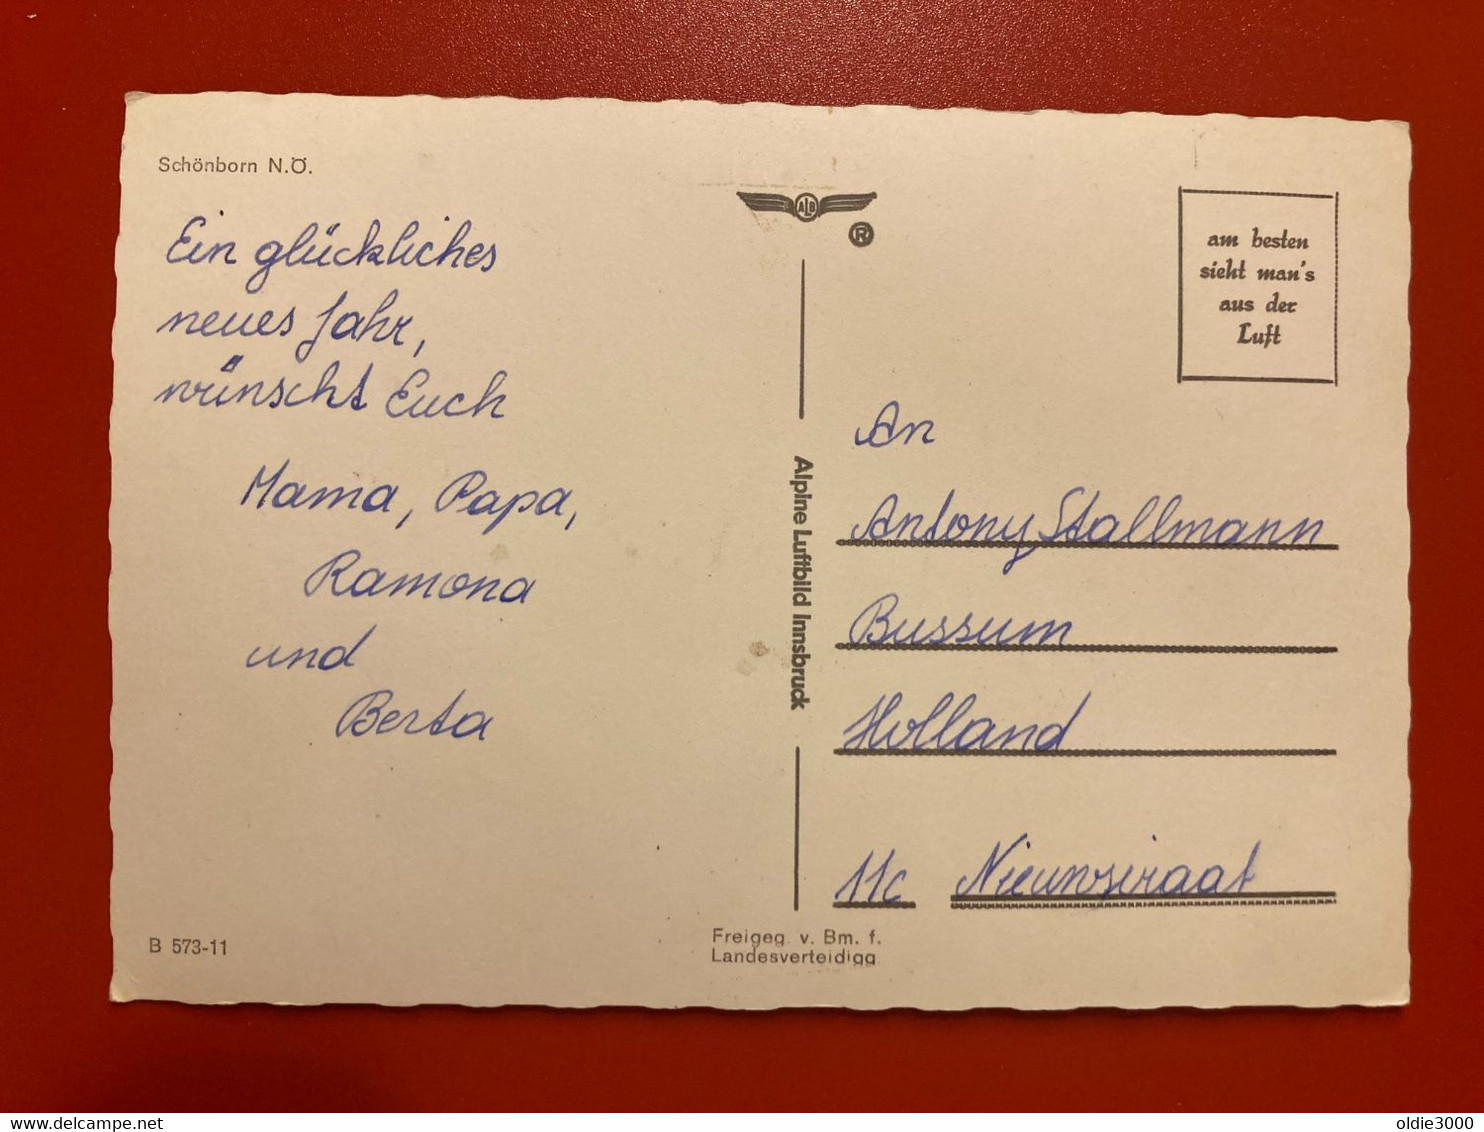 Schönborn N.Ö.
Ein glückliches
neues Jahr,
wünscht Euch
Mama, Papa,
Ramona
und
Berta
B 573-11
ALB
®
Alpine Luftbild Innsbruck
Freigeg. v. Bm. f.
Landesverteidigg
am besten
sieht man's
aus der
Luft
An
Antony Stallmann
Bussum
Holland
11c Nieuwstraat
www.delcampe.net
oldie3000